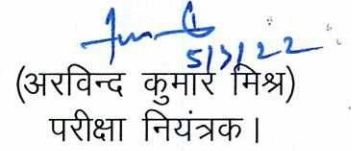 5/7/22
(अरविन्द कुमार मिश्र)
परीक्षा नियंत्रक।